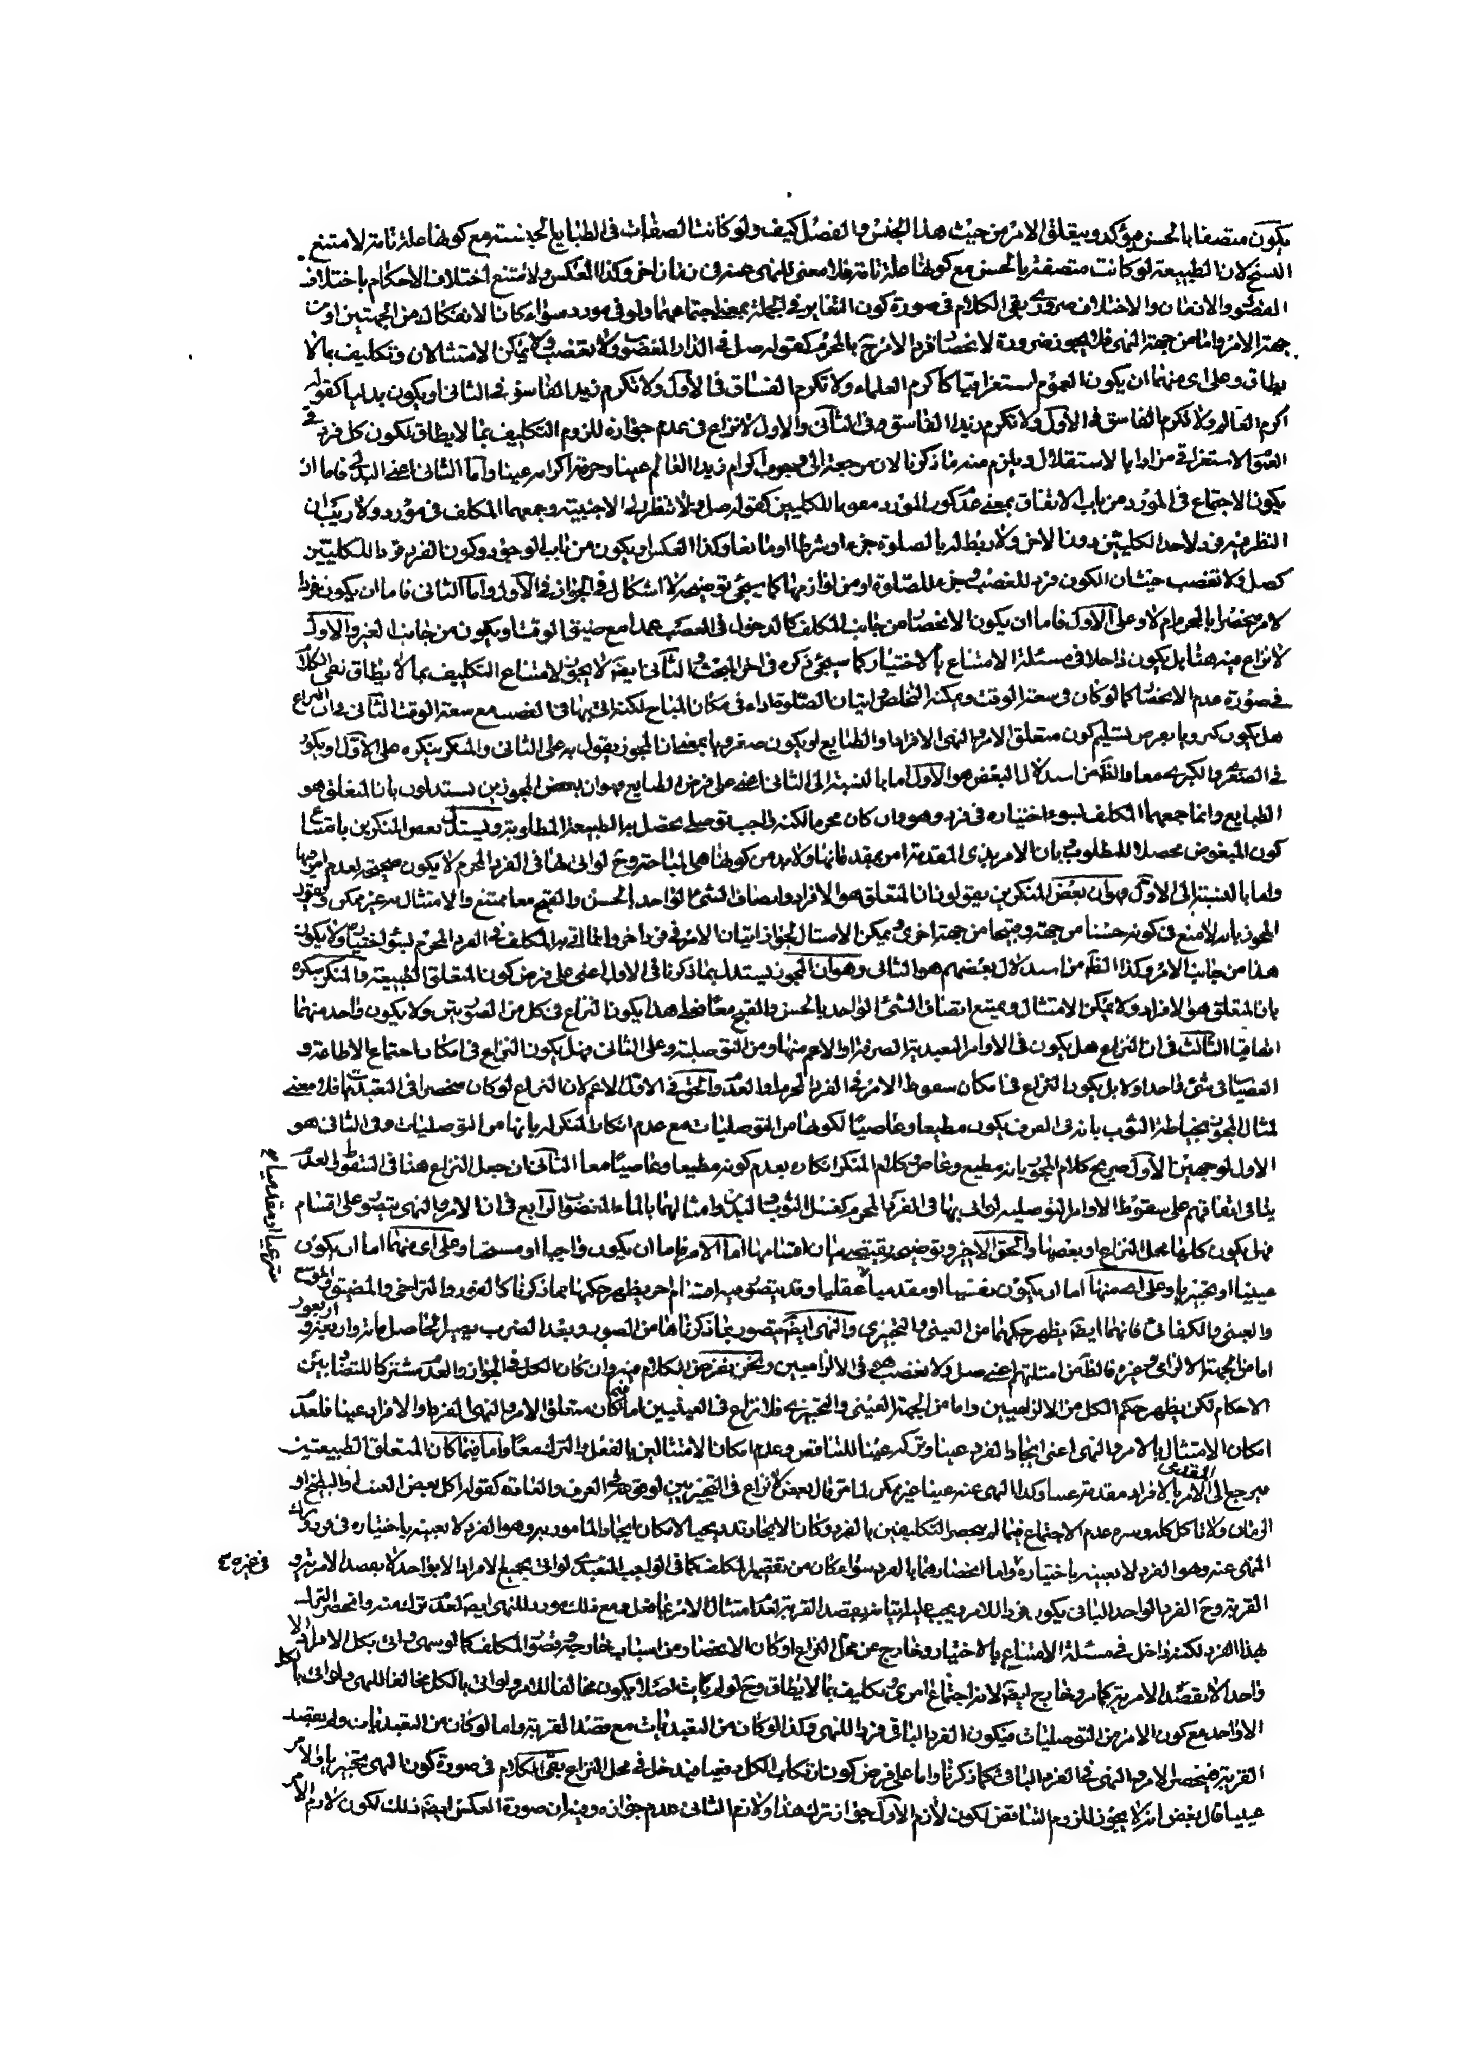 يكون متصفا بالحسن فيؤكد ويتعلق الامر من حيث هذا الجنس والفصل كيف ولو كانت الصفات في الطبايع الجنسية مع كونها علة تامة لامتنع
النسخ لان الطبيعة لو كانت متصفة بالحسن مع كونها علة تامة فلا معنى للنهى عنه في زمان اخر وكذا العكس ولامتنع اختلاف الاحكام باختلاف
والازمان والاختلاف ضرورى بقى الكلام في صورة كون التقابل في الجملة بمعنى اجتماعهما ولو في مورد سواء كان الانفكاك من الجهتين او من
جهة الامر واما من جهة النهى فلا يجوز ضرورة لانحصار فرد الامر ح بالمحرم كقوله صل في الدار المغصوبة ولا تغصب ولا يمكن الامتثالان وتكليف بما لا
يطاق وعلى اى منهما ان يكون العموم استغراقيا كاكرم العلماء ولا تكرم الفساق في الاول ولا تكرم زيدا الفاسق في الثانى او يكون بدليا كقوله
اكرم العالم ولا تكرم الفاسق في الاول ولا تكرم زيدا الفاسق في الثانى والاول لا نزاع في عدم جوازه للزوم التكليف بما لا يطاق لكون كل فرد في
العموم الاستغراقى مرادا بالاستقلال ويلزم منه ما ذكرنا لان مرجعه الى وجوب اكرام زيد العالم عينا وحرمة اكرامه عينا واما الثانى اعنى البدلى فاما ان
يكون الاجتماع في المورد من باب الاتفاق بمعنى عدم كون المورد معها للكليين كقوله صل ولا تنظر الى الاجنبية وجمعهما المكلف في مورد ولا ريب ان
النظر فيه فرد لاحد الكليين دون الاخر ولا ربط له بالصلوة جزء او شرطا او مانعا وكذا العكس او يكون من باب الوجود وكون الفرد فردا للكليين
كصل ولا تغصب حيث ان الكون فرد للغصب وجزء للصلوة او من لوازمها كما سيجئ توضيحه لا اشكال في الجواز في الاول واما الثانى فاما ان يكون فردا
لامر منحصرا بالمحرم ام لا وعلى الاول فاما ان يكون الانحصار من جانب المكلف كالدخول في الغصب عمدا مع ضيق الوقت او يكون من جانب الغير والاول
لا نزاع فيه هنا بل يكون داخلا في مسئلة الامتناع بالاختيار كما سيجئ ذكره في اخر المبحث والثانى ايضا لا يجوز لامتناع التكليف بما لا يطاق بقى الكلام
في صورة عدم الانحصار كما لو كان في سعة الوقت ويمكنه التخلص واتيان الصلوة اداء في مكان المباح لكنه اتى بها في الغصب مع سعة الوقت الثانى في ان النزاع
هل يكون كبرويا بعد تسليم كون متعلق الامر والنهى الافراد والطبايع او يكون صغرويا بمعنى ان المجوز يقول به على الثانى والمنكر ينكره على الاول او يكون
في الصغرى والكبرى معا والظ من استدلال البعض هو الاول اما بالنسبة الى الثانى اعنى على فرض الطبايع فهو ان بعض المجوزين يستدلون بان المتعلق هو
الطبايع وانما جمعهما المكلف بسوء اختياره في فرد وهو وان كان محرما لكنه واجب توصلى يحصل به الطبيعة المطلوبة ويستدل بعض المنكرين بامتناع
كون المبغوض محصلا للمطلوب بان الامر بذى المقدمة امر بمقدماتها ولابد من كونها هى المباحة وح لو اتى بها في الفرد المحرم لا يكون صحيحة لعدم امر بها
واما بالنسبة الى الاول فهو ان بعض المنكرين يقولون ان المتعلق هو الافراد واتصاف الشئ الواحد بالحسن والقبح معا ممتنع والامتثال به غير ممكن ويقول
المجوز بانه لا منع في كونه حسنا من جهة وقبيحا من جهة اخرى ويمكن الامتثال لجواز اتيان الامر في فرد اخر وانما اتى به المكلف في الفرد المحرم بسوء اختياره ولا يكون
هذا من جانب الامر وكذا الظ من استدلال بعضهم هو الثانى وهو ان المجوز يستدل بما ذكرنا في الاول اعنى على فرض كون المتعلق الطبيعة والمنكر ينكره
بان المتعلق هو الافراد ولا يمكن الامتثال ويمتنع اتصاف الشئ الواحد بالحسن والقبح معا فعلى هذا يكون النزاع في كل من الصورتين ولا يكون واحد منهما
اتفاقيا الثالث في ان النزاع هل يكون في الاوامر التعبدية الصرفة او الاعم منها ومن التوصلية وعلى الثانى فهل يكون النزاع في امكان اجتماع الاطاعة و
العصيان في شئ واحد اولا بل يكون النزاع في امكان سقوط الامر في الفرد المحرم او العدم والحق في الاول الاعم لان النزاع لو كان منحصرا في التعبديات فلا معنى
لمثال المجوز بخياطة الثوب بانه في العرف يكون مطيعا وعاصيا لكونها من التوصليات مع عدم انكار المنكر له بانها من التوصليات وفي الثانى هو
الاول لوجهين الاول صريح كلام المجوز بانه مطيع وعاص وكلام المنكر انكاره بعدم كونه مطيعا وعاصيا معا الثانى ان جعل النزاع هذا في السقوط والعدم
ينافى اتفاقهم على سقوط الاوامر التوصلية لو اتى بها في الفرد المحرم كغسل الثوب والبدن وامثالهما بالماء المغصوب الرابع في ان الامر والنهى يتصور على اقسام
فهل يكون كلها محل النزاع او بعضها والحق الاخير وتوضيحه يقتضى بيان اقسامها اما الامر فاما ان يكون واجبا او مستحبا وعلى اى منهما اما ان يكون
عينيا او تخييريا وعلى اى منهما اما ان يكون نفسيا او مقدميا عقليا وقد يتصور فيه اقسام اخر يظهر حكمها مما ذكرنا كالفور والتراخى والمضيق والموسع
شرعيا او مقدميا
والعينى والكفائى فانهما ايضا يظهر حكمهما من العينى والتخييرى والنهى ايضا يتصور بما ذكرناها من الصور وبعد الضرب يصير الحاصل مائة واربعة واربعون
اما من الجهة الالزامى وغيره فالظ من امثلتهم اعنى صل ولا تغصب هو في الالزاميين ونحن نفرض الكلام فيه وان كان الكل في الجواز والعدم مشتركا للتضاد بين
الاحكام لكن يظهر حكم الكل من الالزاميين واما من الجهة العينى والتخييرى فلا نزاع في العينيين اما فيما كان متعلق الامر والنهى الفرد او الافراد عينا فلعدم
امكان الامتثال بالامر والنهى اعنى ايجاد الفرد عينا وتركه عينا للتناقض وعدم امكان الامتثالين بالفعل والترك معا واما فيما كان المتعلق الطبيعتين
فيرجع الى الامر بالافراد مقدمة عينا وكذا النهى عنه عينا غير ممكن لما مر قال بعض لا نزاع في التخييريين لوقوعه في العرف والعادة كقوله كل بعض العنب والبطيخ او
الرمان ولا تاكل كله وسره عدم الاجتماع فيما لم ينحصر التكليفين بالفرد وكان الايجاد تدريجيا لامكان ايجاد المامور به وهو الفرد لا بعينه باختياره في فرد وترك
المنهى عنه وهو الفرد لا بعينه باختياره واما انحصارهما بالفرد سواء كان من تقصير المكلف كما في الواجب التعبدى لو اتى بجميع الافراد الا بواحد لا بقصد الامرية و
في غيره
القربة وح الفرد الواحد الباقى يكون فردا للامر ويجب عليه اتيانه بقصد القربة لعدم امتثال الامر بما فعل ومع ذلك مورد للنهى ايضا لعدم تركه منه وانحصر الترك
بهذا الفرد لكنه داخل في مسئلة الامتناع بالاختيار وخارج عن محل النزاع او كان الانحصار من اسباب خارجة وقصور المكلف كما لو سهى واتى بكل الافراد الا
واحدا لا بقصد الامرية كما مر وخارج ايضا لانه اجتماع امرى وتكليف بما لا يطاق وح لو لم يات اصلا يكون مخالفا للامر ولو اتى بالكل مخالفا للنهى ولو اتى بالكل
الا واحد مع كون الامر من التوصليات فيكون الفرد الباقى فردا للنهى وكذا لو كان من التعبديات مع قصد القربة واما لو كان من التعبديات ولم يقصد
القربة فينحصر الامر والنهى في الفرد الباقى كما ذكرنا واما على فرض كون ارتكاب الكل دفعيا فيدخل في محل النزاع بقى الكلام في صورة كون النهى تخييريا والامر
عينيا قال بعض انه لا يجوز للزوم التناقض لكون لازم الاول جواز ترك هذا ولازم الثانى عدم جوازه وفيه ان صورة العكس ايضا ذلك لكون لازم الامر